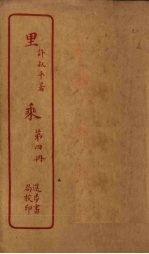 里乘
許叔平著
第四冊
進步書
局校印